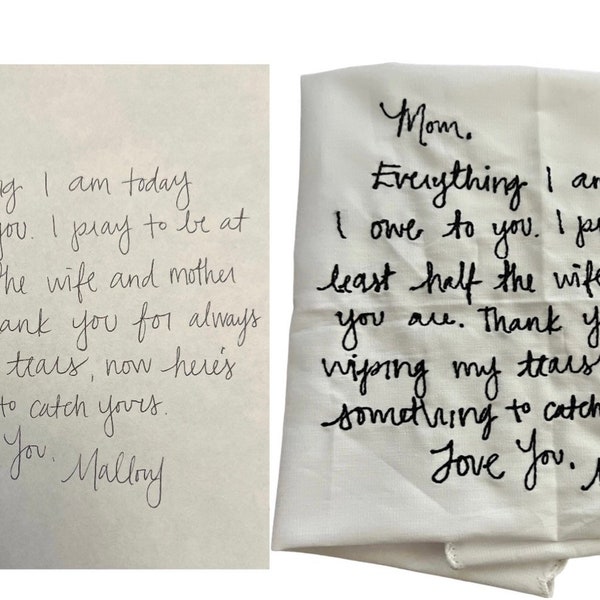 ng I am today
you. I pray to be at
the wife and mother
ank you for always
tears, now here's
to catch yours.
You.
Mallory
Mom.
Everything I am
I owe to you. I pr
least half the wife
you are. Thank y
wiping my tears
something to catch
Love You.